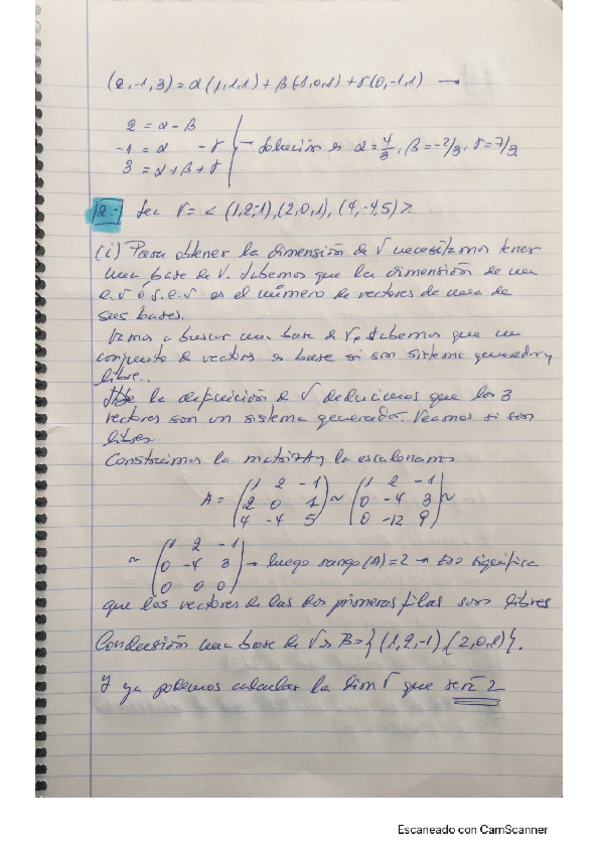 (2,-1,3) = α(1,1,1) + β(-1,0,1) + γ(0,-1,1) →
2 = α - β
-1 = α - γ
3 = α + β + γ
Solución es α = 4/3, β = -2/3, γ = 7/3
2.- Sea V = < (1,2,-1), (2,0,1), (4,-4,5) >
(i) Para obtener la dimensión de V necesitamos tener
una base de V. Sabemos que la dimensión de un
e.v ó s.e.v es el número de vectores de una de
sus bases.
Vamos a buscar una base de V, sabemos que un
conjunto de vectores es base si son sistema generador y
libre.
De la definición de V deducimos que los 3
vectores son un sistema generador. Veamos si son
libres.
Construimos la matriz A y la escalonamos
A = (1 2 -1 / 2 0 1 / 4 -4 5) ~ (1 2 -1 / 0 -4 3 / 0 -12 9) ~
~ (1 2 -1 / 0 -4 3 / 0 0 0) → luego rango(A) = 2 → eso significa
que los vectores de las dos primeras filas son libres
Conclusión una base de V es B = {(1,2,-1), (2,0,1)}.
Y ya podemos calcular la dim V que será 2
Escaneado con CamScanner